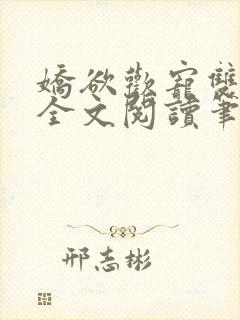 嬌欲歡寵雙
全文閱讀筆
邢志彬